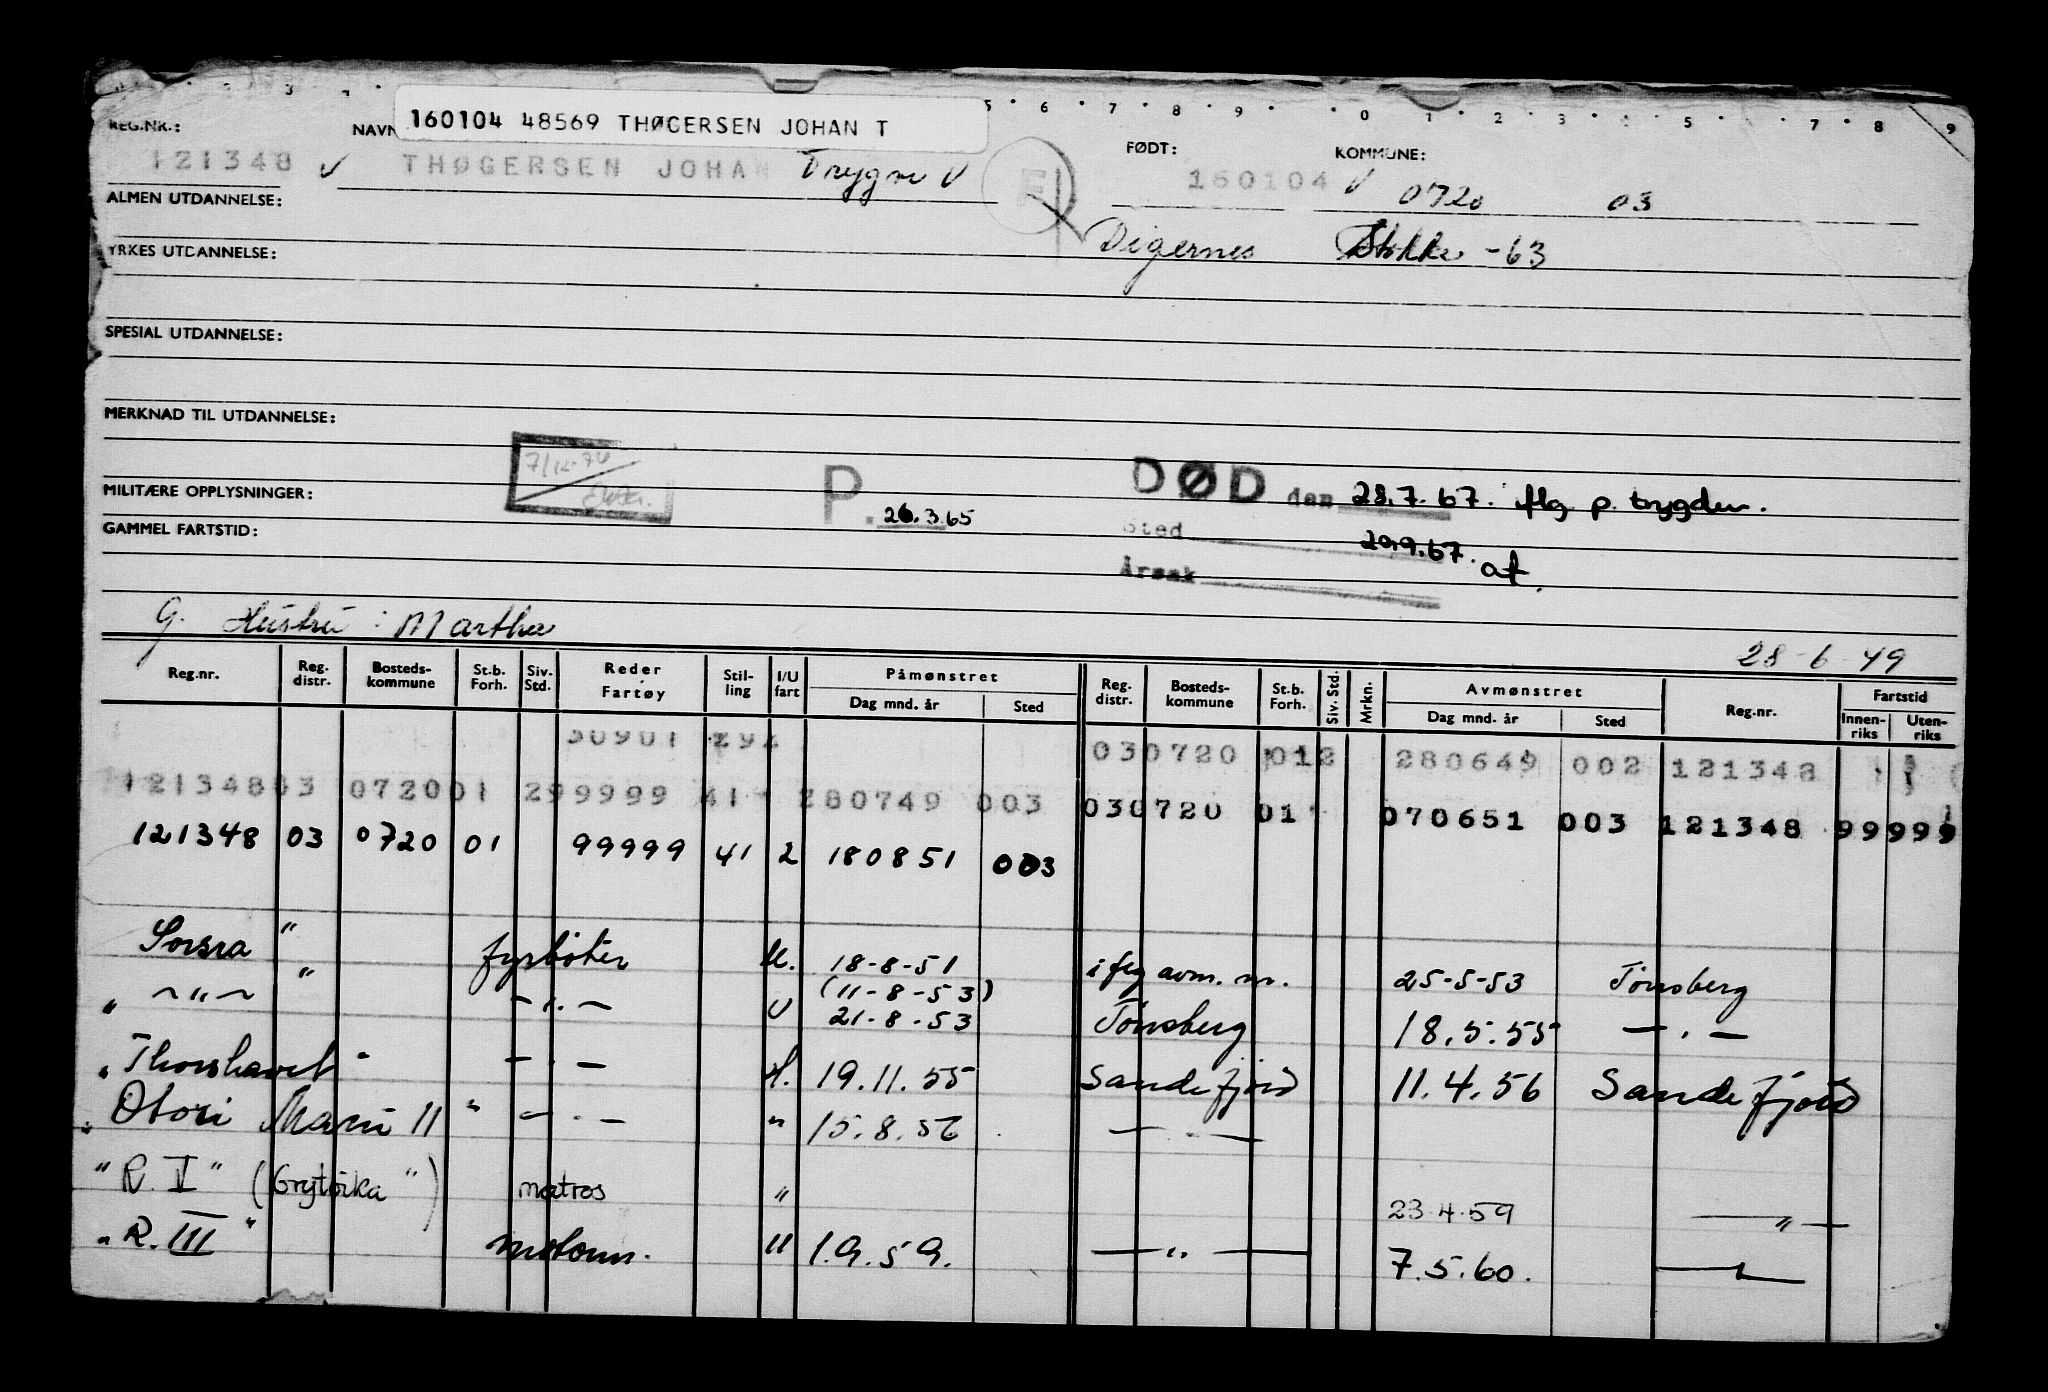 160104 48569 THØGERSEN JOHAN T
REG.NR.: NAVN FØDT: KOMMUNE:
121348 v THØGERSEN JOHAN Trygve v 160104 v 0720 03
ALMEN UTDANNELSE:
Digernes Stokke -63
YRKES UTDANNELSE:
SPESIAL UTDANNELSE:
MERKNAD TIL UTDANNELSE:
MILITÆRE OPPLYSNINGER: P. 26.3.65 DØD den 28.7.67. flg p. trygden.
GAMMEL FARTSTID: Sted 20.9.67. af.
Årsak
G. Hustru: Martha
28-6-49
Reg.nr. Reg. distr. Bosteds-kommune St.b. Forh. Siv. Std. Reder - Fartøy Stil-ling I/U fart Påmønstret Dag mnd. år Sted Reg. distr. Bosteds-kommune St.b. Forh. Siv. Std. Mrkn. Avmønstret Dag mnd. år Sted Reg.nr. Fartstid Innen-riks Uten-riks
30901 292 030720 012 280649 002 121348
12134803 072001 299999 41 280749 003 030720 01 070651 003 121348 99999
121348 03 0720 01 99999 41 2 180851 003
Sorsra " fyrbøter U. 18-8-51 iflg avm. m. 25-5-53 Tønsberg
" -"- " -"- U (11-8-53) 21-8-53 Tønsberg 18.5.55 -"-
"Thorshavet" -"- U. 19.11.55 Sandefjord 11.4.56 Sandefjord
"Otori Maru 11" -"- " 15.8.56 -"-
"R. V" (Grytvika") matros " 23.4.59 -"-
"R. III" motorm. 11 1.9.59. -"- 7.5.60. -"-